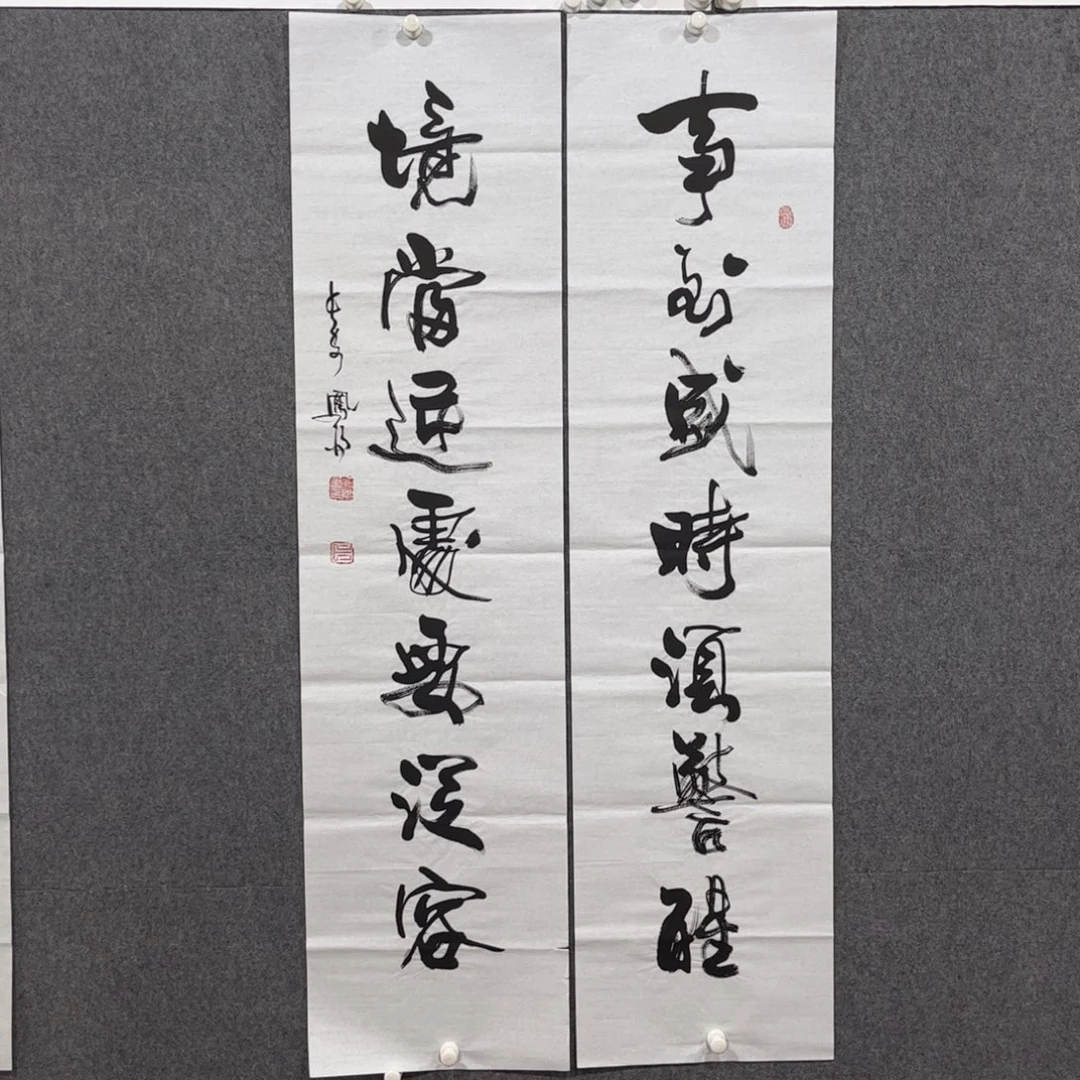 事到盛時須警醒
境當逆處要從容